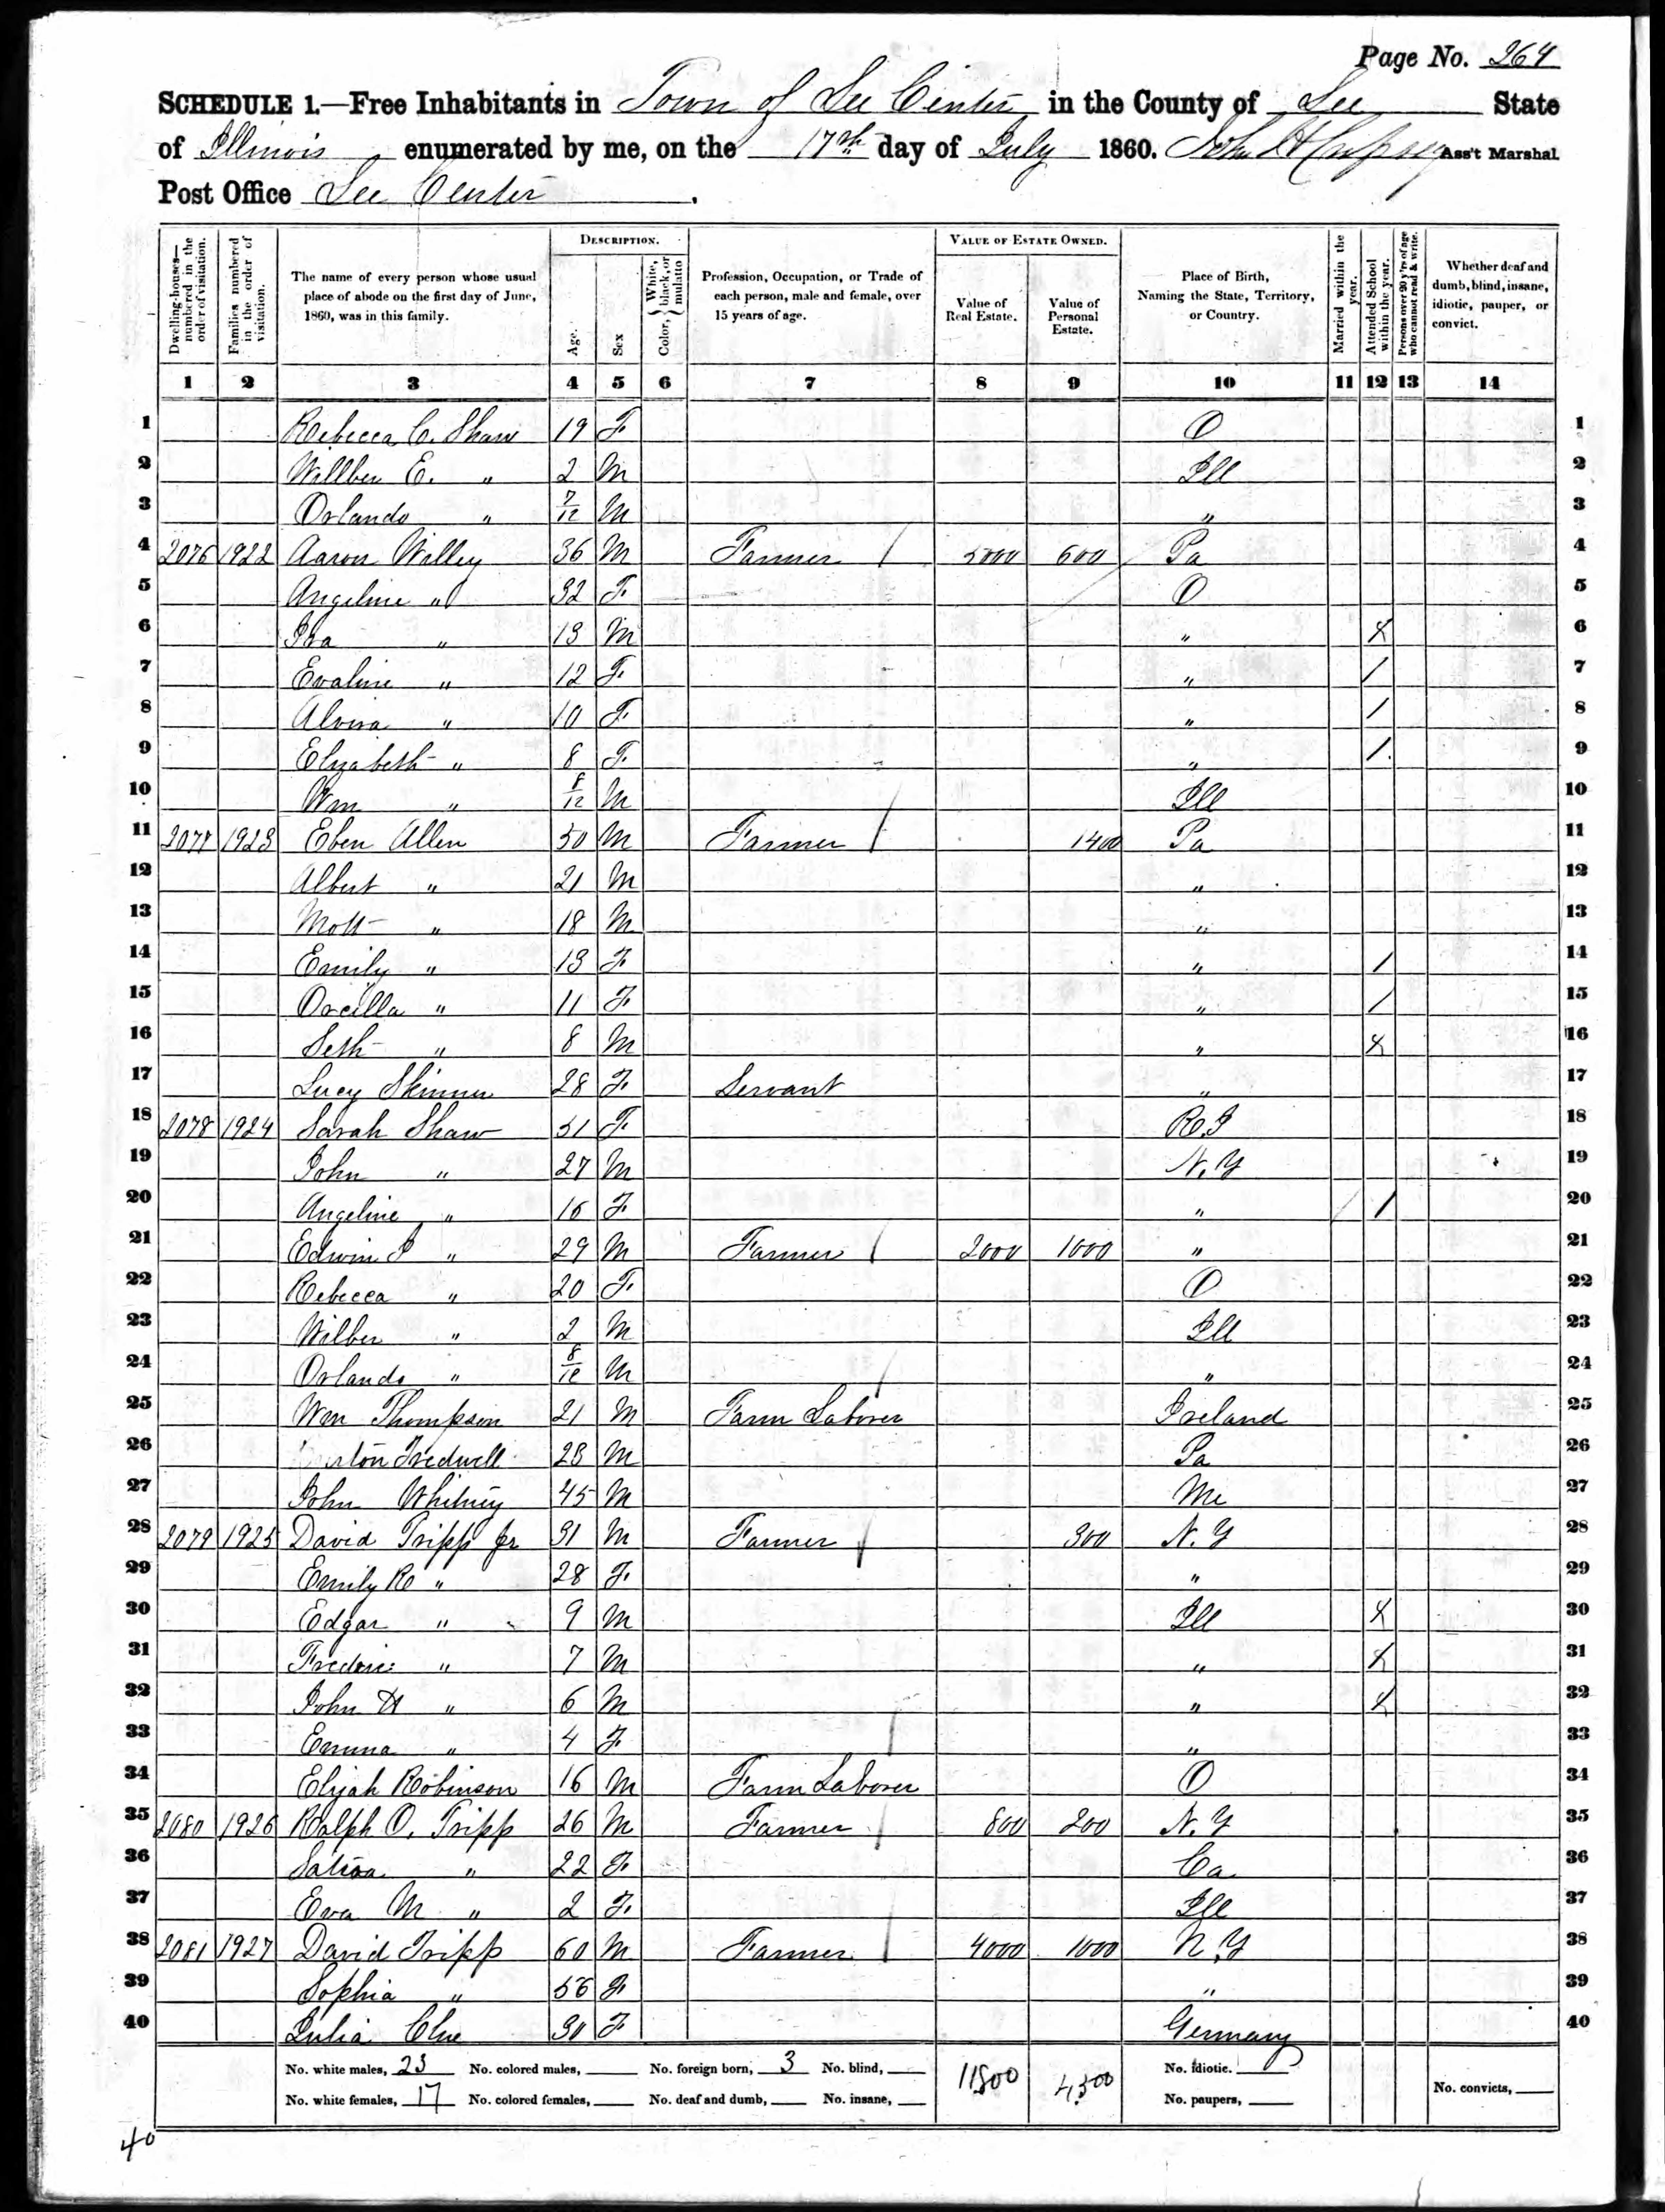 Page No. 264
SCHEDULE 1.—Free Inhabitants in Town of Lee Center in the County of Lee State
of Illinois enumerated by me, on the 17th day of July 1860. John H Ass't Marshal
Post Office Lee Center .
Dwelling-houses—numbered in the order of visitation.
Families numbered in the order of visitation.
The name of every person whose usual place of abode on the first day of June, 1860, was in this family.
DESCRIPTION.
Age.
Sex
Color, { White, black, or mulatto
Profession, Occupation, or Trade of each person, male and female, over 15 years of age.
VALUE OF ESTATE OWNED.
Value of Real Estate.
Value of Personal Estate.
Place of Birth, Naming the State, Territory, or Country.
Married within the year.
Attended School within the year.
Persons over 20 y'rs of age who cannot read & write.
Whether deaf and dumb, blind, insane, idiotic, pauper, or convict.
1 2 3 4 5 6 7 8 9 10 11 12 13 14
1 Rebecca C. Shaw 19 F O 1
2 Willber E. " 2 M Ill 2
3 Orlando " 7/12 M " 3
4 2076 1922 Aaron Willey 36 M Farmer / 5000 600 Pa 4
5 Angeline " 32 F O 5
6 Ira " 13 M " X 6
7 Evaline " 12 F " / 7
8 Alvira " 10 F " / 8
9 Elizabeth " 8 F " / 9
10 Wm " 8/12 M Ill 10
11 2077 1923 Eben Allen 50 M Farmer / 1400 Pa 11
12 Albert " 21 M " 12
13 Mott " 18 M " 13
14 Emily " 13 F " / 14
15 Orcilla " 11 F " / 15
16 Seth " 8 M " X 16
17 Lucy Skinner 28 F Servant " 17
18 2078 1924 Sarah Shaw 51 F R.I 18
19 John " 27 M N.Y 19
20 Angeline " 16 F " / 20
21 Edwin P " 29 M Farmer / 2000 1000 " 21
22 Rebecca " 20 F O 22
23 Wilber " 2 M Ill 23
24 Orlando " 8/12 M " 24
25 Wm Thompson 21 M Farm Laborer Ireland 25
26 Tredwell 28 M Pa 26
27 John Whitney 45 M Me 27
28 2079 1925 David Tripp Jr 31 M Farmer / 300 N.Y 28
29 Emily R " 28 F " 29
30 Edgar " 9 M Ill X 30
31 Frederic " 7 M " X 31
32 John H " 6 M " X 32
33 Emma " 4 F " 33
34 Elijah Robinson 16 M Farm Laborer O 34
35 2080 1926 Ralph O. Tripp 26 M Farmer / 800 200 N.Y 35
36 " 22 F Ca 36
37 Eva M " 2 F Ill 37
38 2081 1927 David Tripp 60 M Farmer / 4000 1000 N.Y 38
39 Sophia " 56 F " 39
40 Julia Clue 30 F Germany 40
No. white males, 23 No. colored males, No. foreign born, 3 No. blind, 11800 4,500 No. idiotic. No. convicts,
No. white females, 17 No. colored females, No. deaf and dumb, No. insane, No. paupers,
40